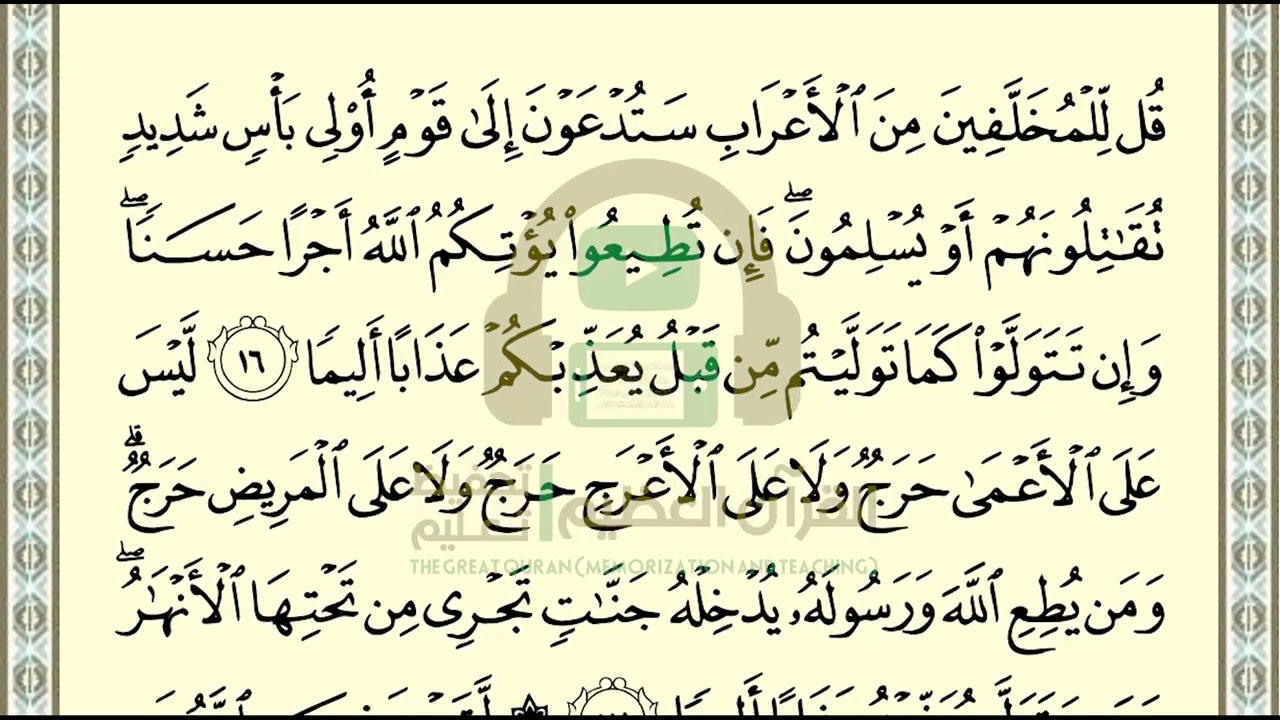 قُل لِّلْمُخَلَّفِينَ مِنَ ٱلْأَعْرَابِ سَتُدْعَوْنَ إِلَىٰ قَوْمٍ أُوْلِى بَأْسٍ شَدِيدٍ
تُقَٰتِلُونَهُمْ أَوْ يُسْلِمُونَ ۖ فَإِن تُطِيعُوا۟ يُؤْتِكُمُ ٱللَّهُ أَجْرًا حَسَنًا ۖ
وَإِن تَتَوَلَّوْا۟ كَمَا تَوَلَّيْتُم مِّن قَبْلُ يُعَذِّبْكُمْ عَذَابًا أَلِيمًا ١٦ لَّيْسَ
عَلَى ٱلْأَعْمَىٰ حَرَجٌ وَلَا عَلَى ٱلْأَعْرَجِ حَرَجٌ وَلَا عَلَى ٱلْمَرِيضِ حَرَجٌ ۗ
القرآن العظيم | تحفيظ تعليم
THE GREAT QURAN (MEMORIZATION AND TEACHING)
وَمَن يُطِعِ ٱللَّهَ وَرَسُولَهُۥ يُدْخِلْهُ جَنَّٰتٍ تَجْرِى مِن تَحْتِهَا ٱلْأَنْهَٰرُ ۖ